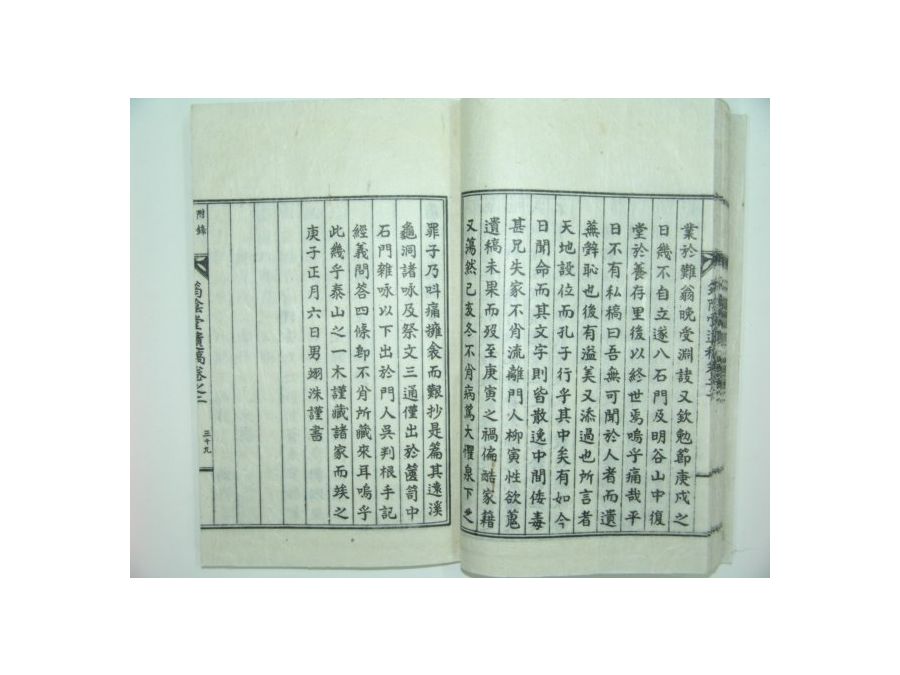 業於難翁晩受淵諄又欽勉節庚戌之
日幾不自立遂入石門及明谷山中復
堂於養存里後以終世焉嗚乎痛哉平
日不有私稿曰吾無可聞於人者而遺
蕪辭恥也後有溢美又添過也所言者
天地設位而孔子行乎其中矣有如今
日聞命而其文字則皆散逸中間倭毒
甚兄失家不肖流離門人柳寅性欲蒐
遺稿未果而歿至庚寅之禍偏酷家籍
又蕩然已亥冬不肖病篤大懼泉下之
罪子乃呌痛擁衾而艱抄是篇其遠溪
龜洞諸咏及祭文三通僅出於篋笥中
石門雜咏以下出於門人吳判根手記
經義問答四條郞不肖所藏來耳嗚乎
此幾乎泰山之一木謹藏諸家而竢之
庚子正月六日男翊洙謹書
附錄
筠陰堂遺稿卷之二
三十九